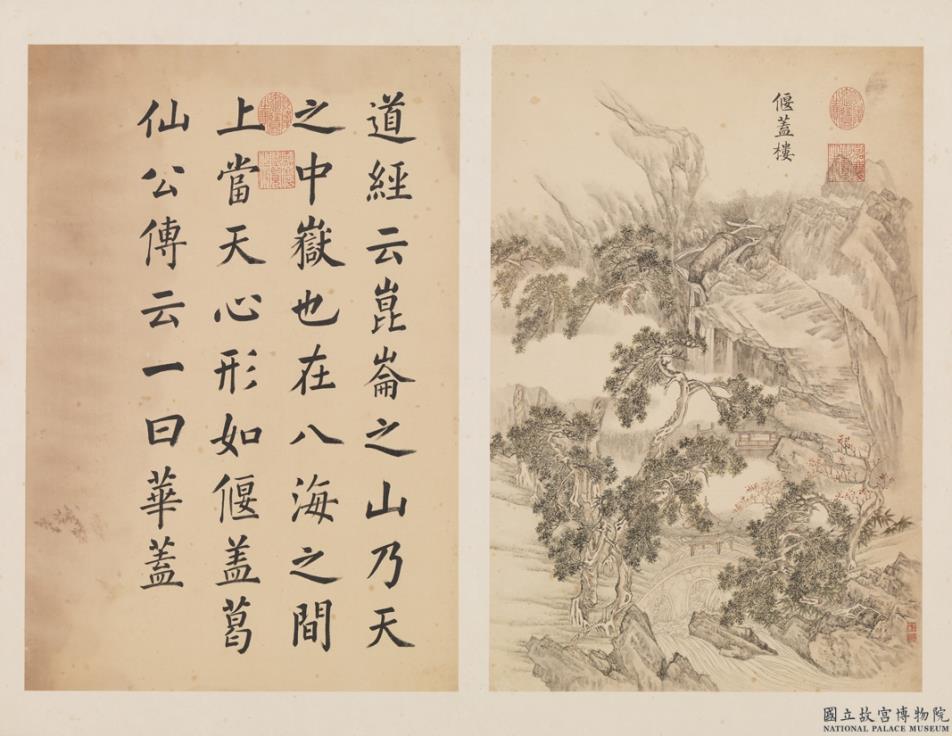 偃蓋樓
道經云崑崙之山乃天
之中嶽也在八海之間
上當天心形如偃盖葛
仙公傳云一曰華蓋
國立故宮博物院
NATIONAL PALACE MUSEUM